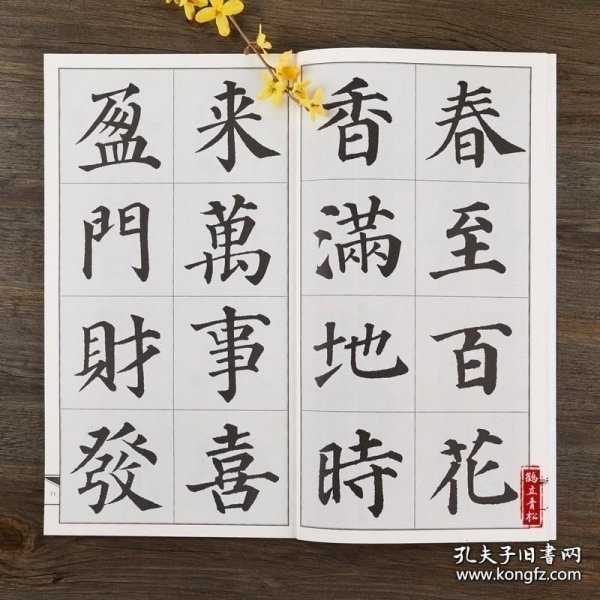 春至百花
香滿地時
来萬事喜
盈門財發
11
鶴立青松
孔夫子旧书网
www.kongfz.com